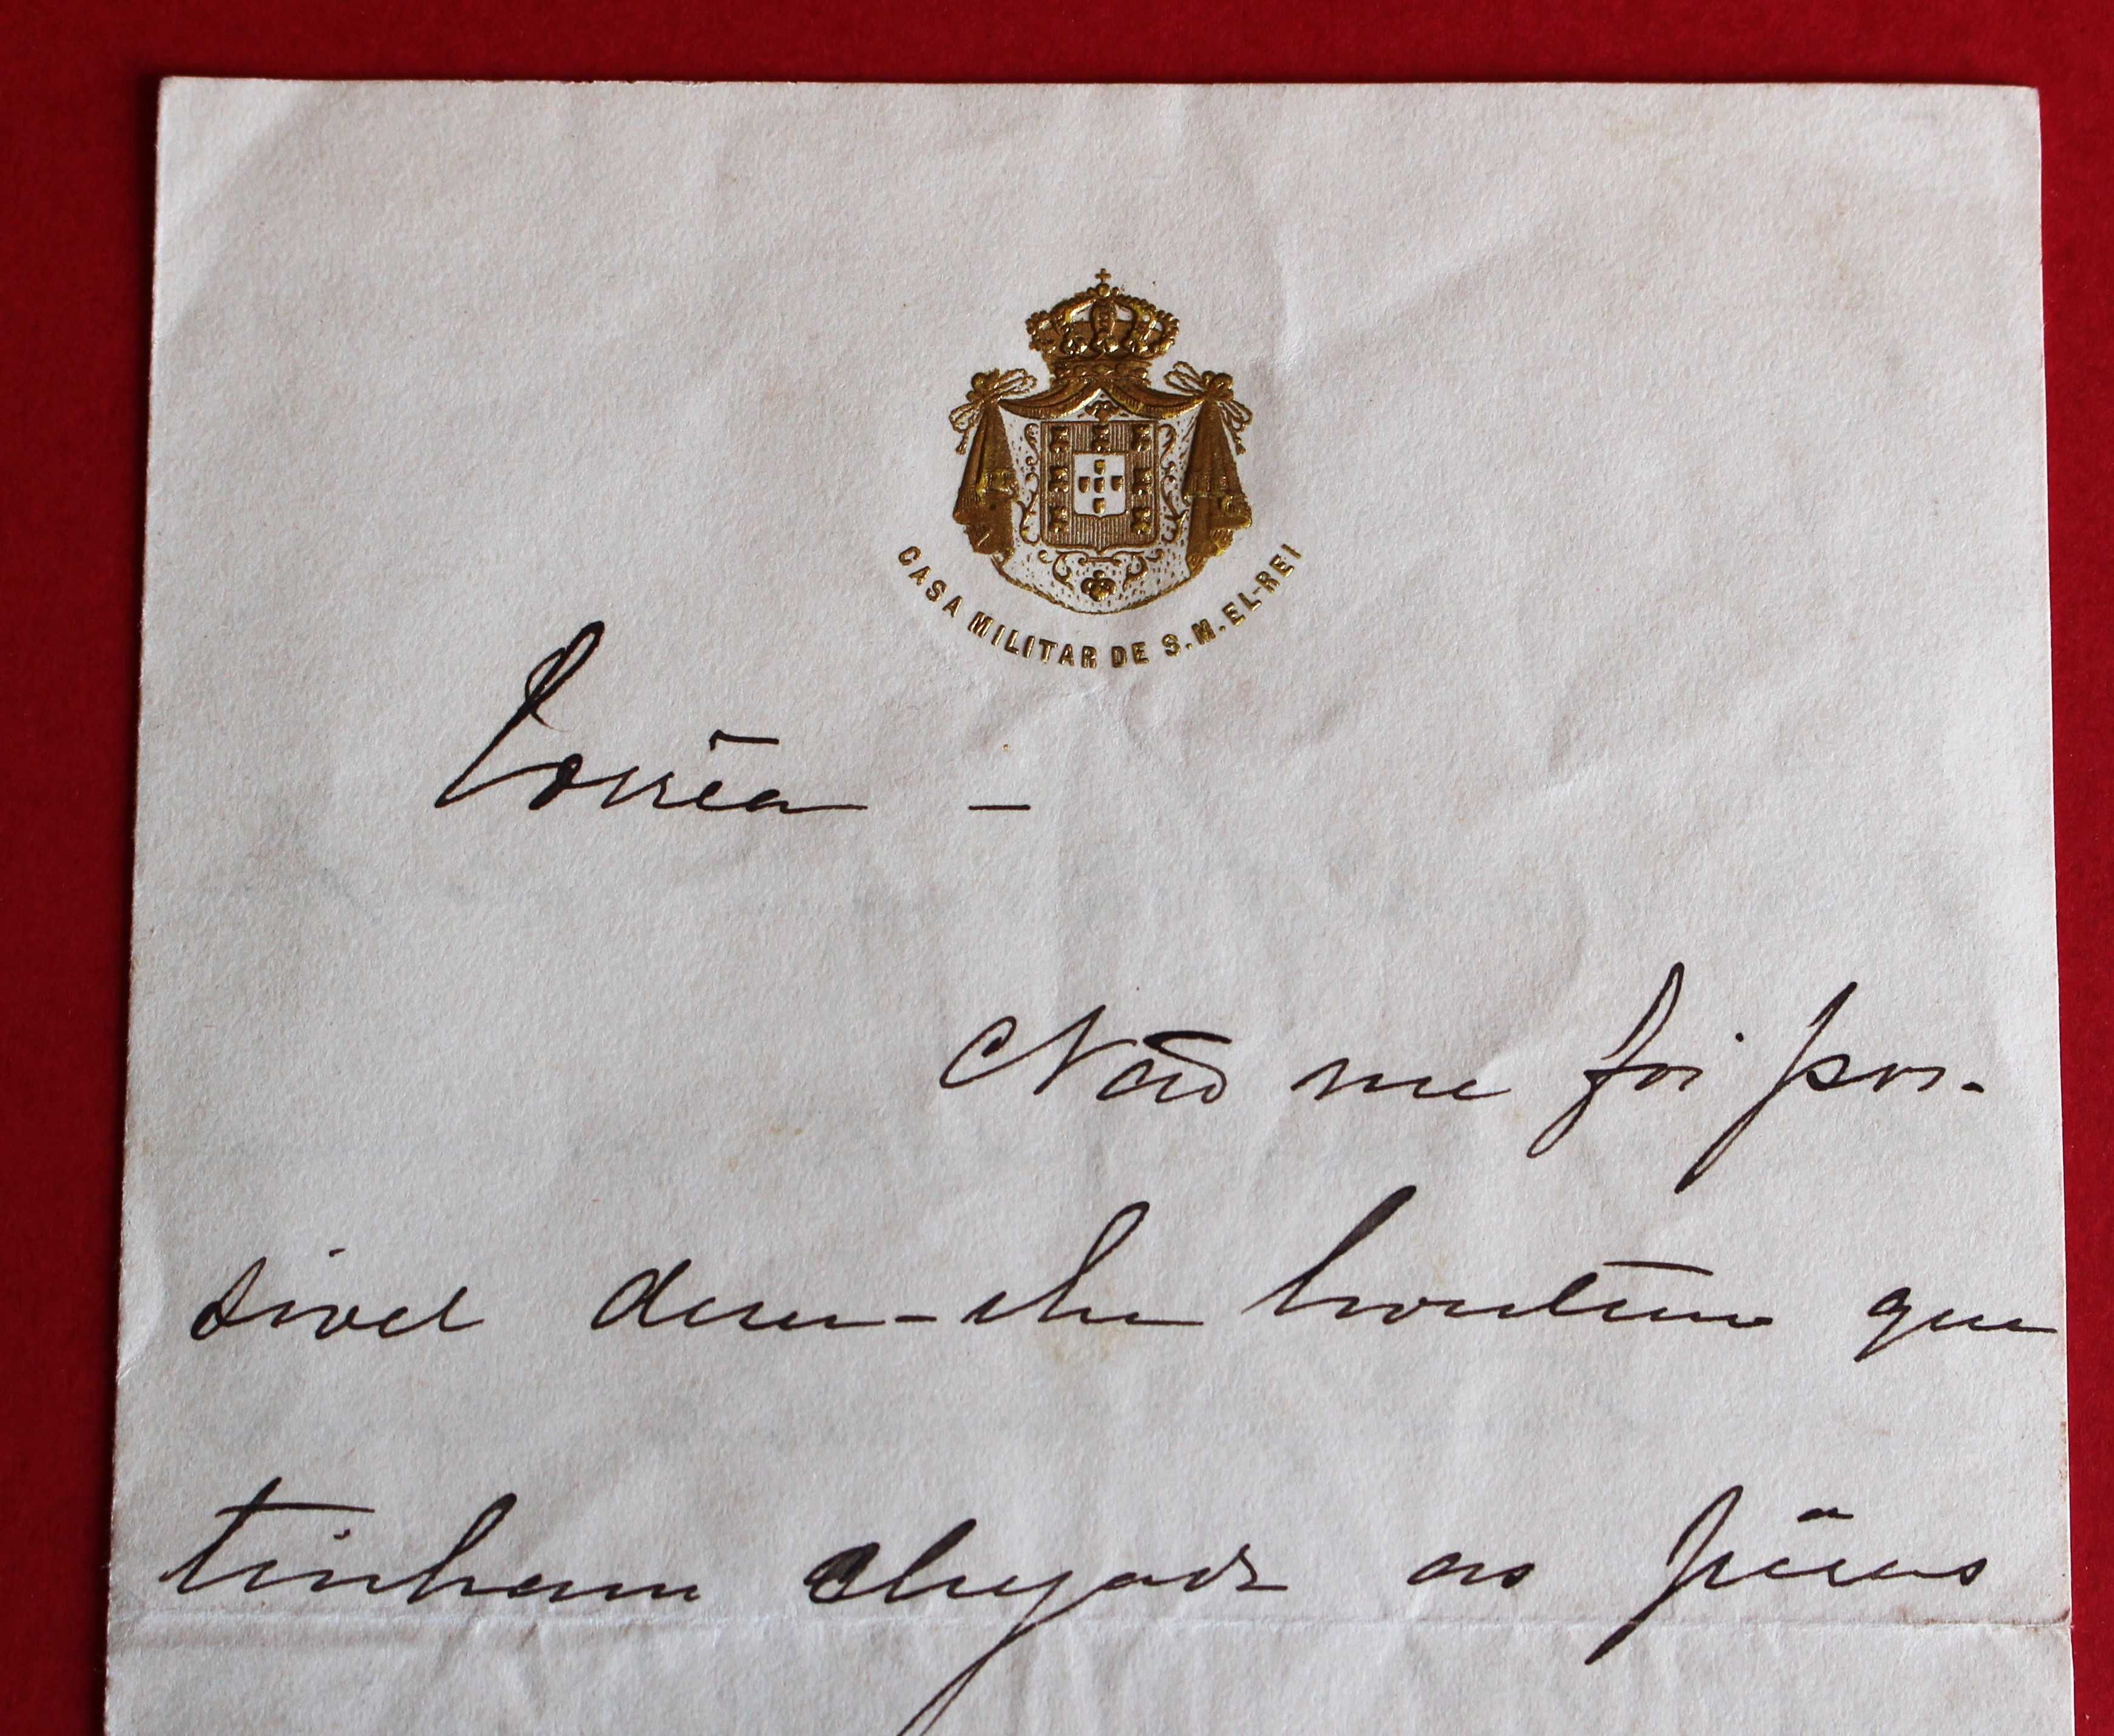 CASA MILITAR DE S.M. EL-REI
Corrêa -
Não me foi pos-
sivel dizer-lhe hontem que
tinham chegado as